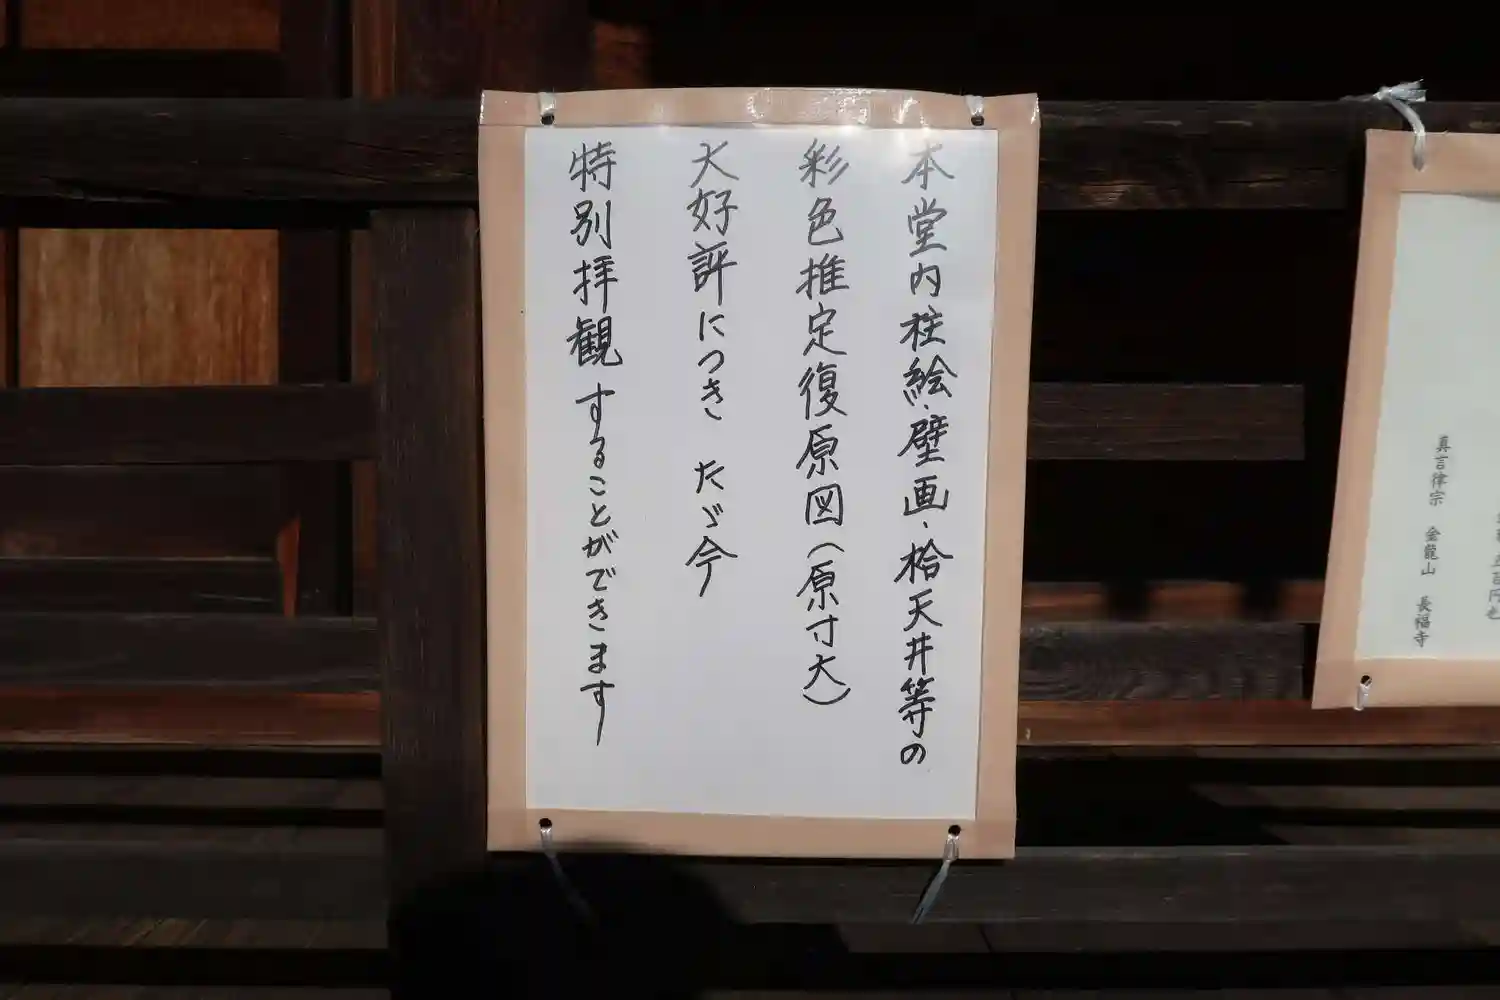 本堂内柱絵・壁画・格天井等の
彩色推定復原図(原寸大)
大好評につき たゞ今
特別拝観することができます
真言律宗 金龍山 長福寺